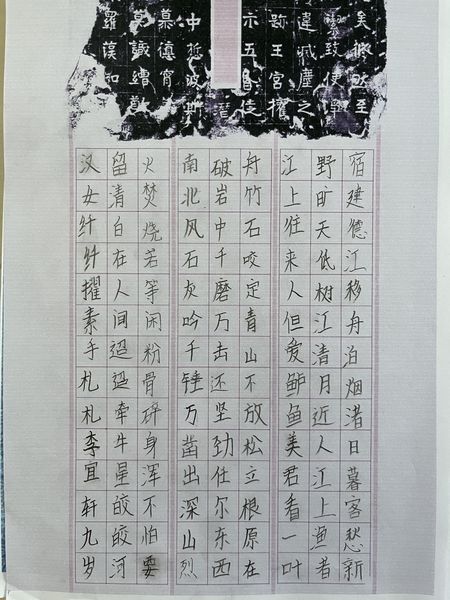 然至
致使
塵之
跡王宮
示五
著
中
慕德
羅漢和
宿建德江移舟泊烟渚日暮客愁新
野旷天低树江清月近人江上渔者
江上往来人但爱鲈鱼美君看一叶
舟竹石咬定青山不放松立根原在
破岩中千磨万击还坚劲任尔东西
南北风石灰吟千锤万凿出深山烈
火焚烧若等闲粉骨碎身浑不怕要
留清白在人间迢迢牵牛星皎皎河
汉女纤纤擢素手札札李宜轩九岁